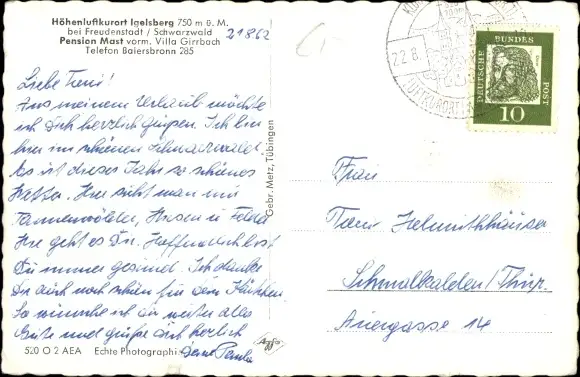 Höhenluftkurort Igelsberg 750 m ü. M.
bei Freudenstadt / Schwarzwald
Pension Mast vorm. Villa Girrbach
Telefon Baiersbronn 285
21862
Liebe
Aus meinem Urlaub möchte
ich Dich herzlich grüßen. Ich bin
hier im schönen Schwarzwald.
Es ist dieses Jahr so schönes
Wetter. Hier sieht man nur
Tannenwälder, Wiesen u. Felder
Wie geht es Dir. Hoffendlich bist
Du immer gesund. Ich danke
Dir auch noch schön für dem
So wünsche ich Dir weiter alles
Gute und grüße Dich herzlich
Deine
520 O 2 AEA Echte Photographie
Agfa
Gebr. Metz, Tübingen
22.8.
LUFTKURORT
DEUTSCHE BUNDESPOST
10
Frau
Helmuthhäuser
Schmalkalden / Thür.
Auergasse 14